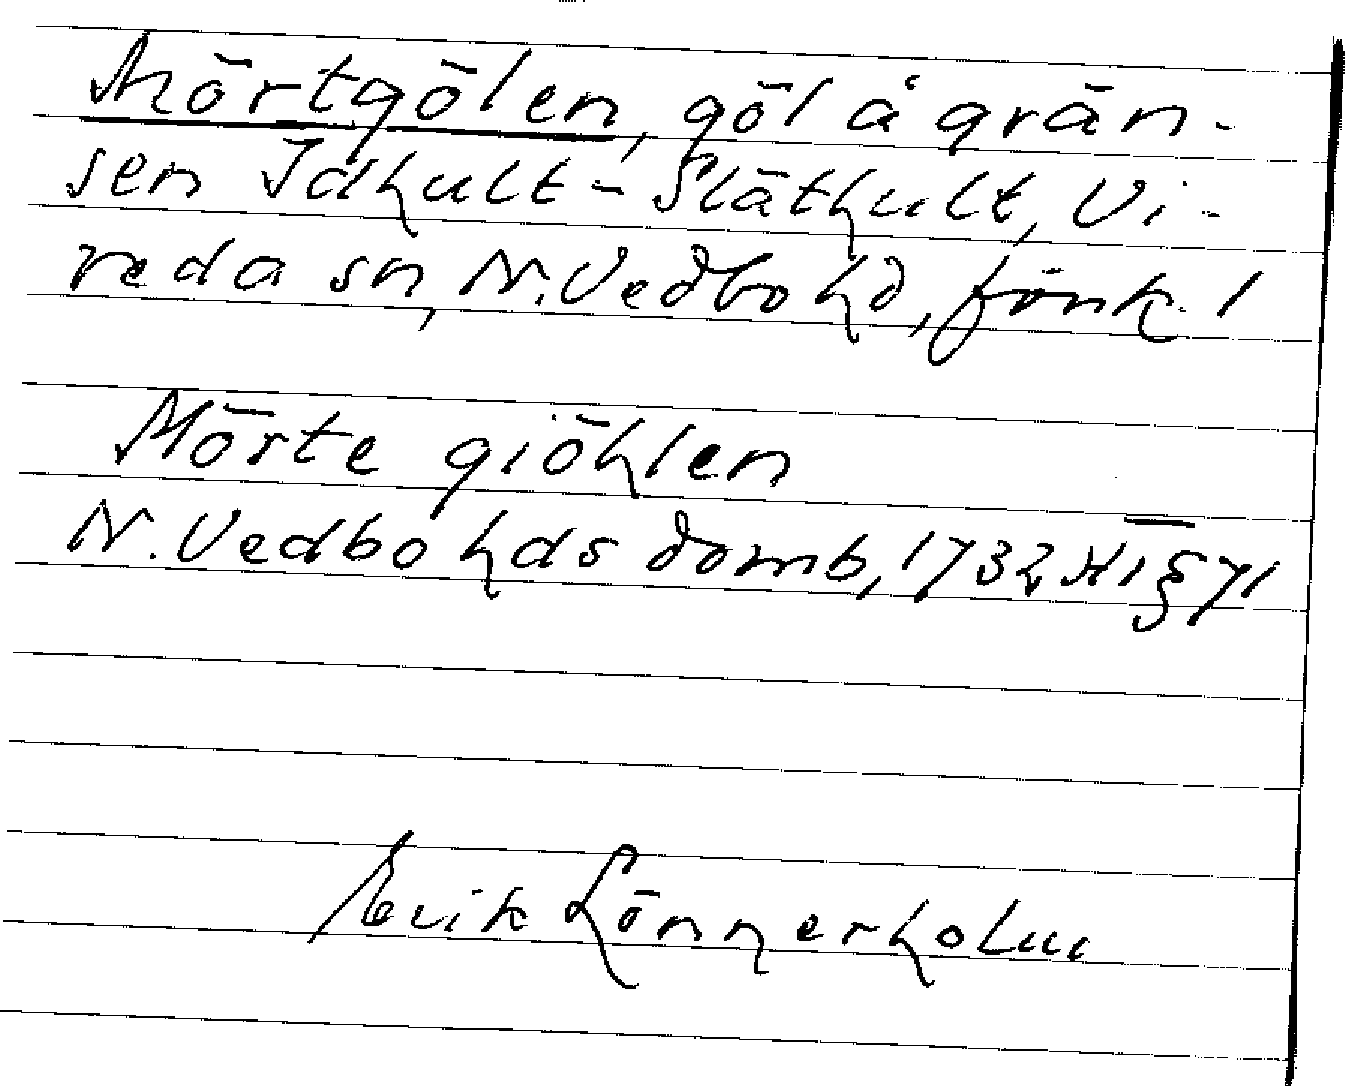 Mörtgölen, göl å grän-
sen Idhult - Släthult, Vi-
reda sn, N. Vedbo hd, Jönk. l
Mörte giöhlen
N. Vedbo hds domb, 1732 § 71
Erik Lönnerholm